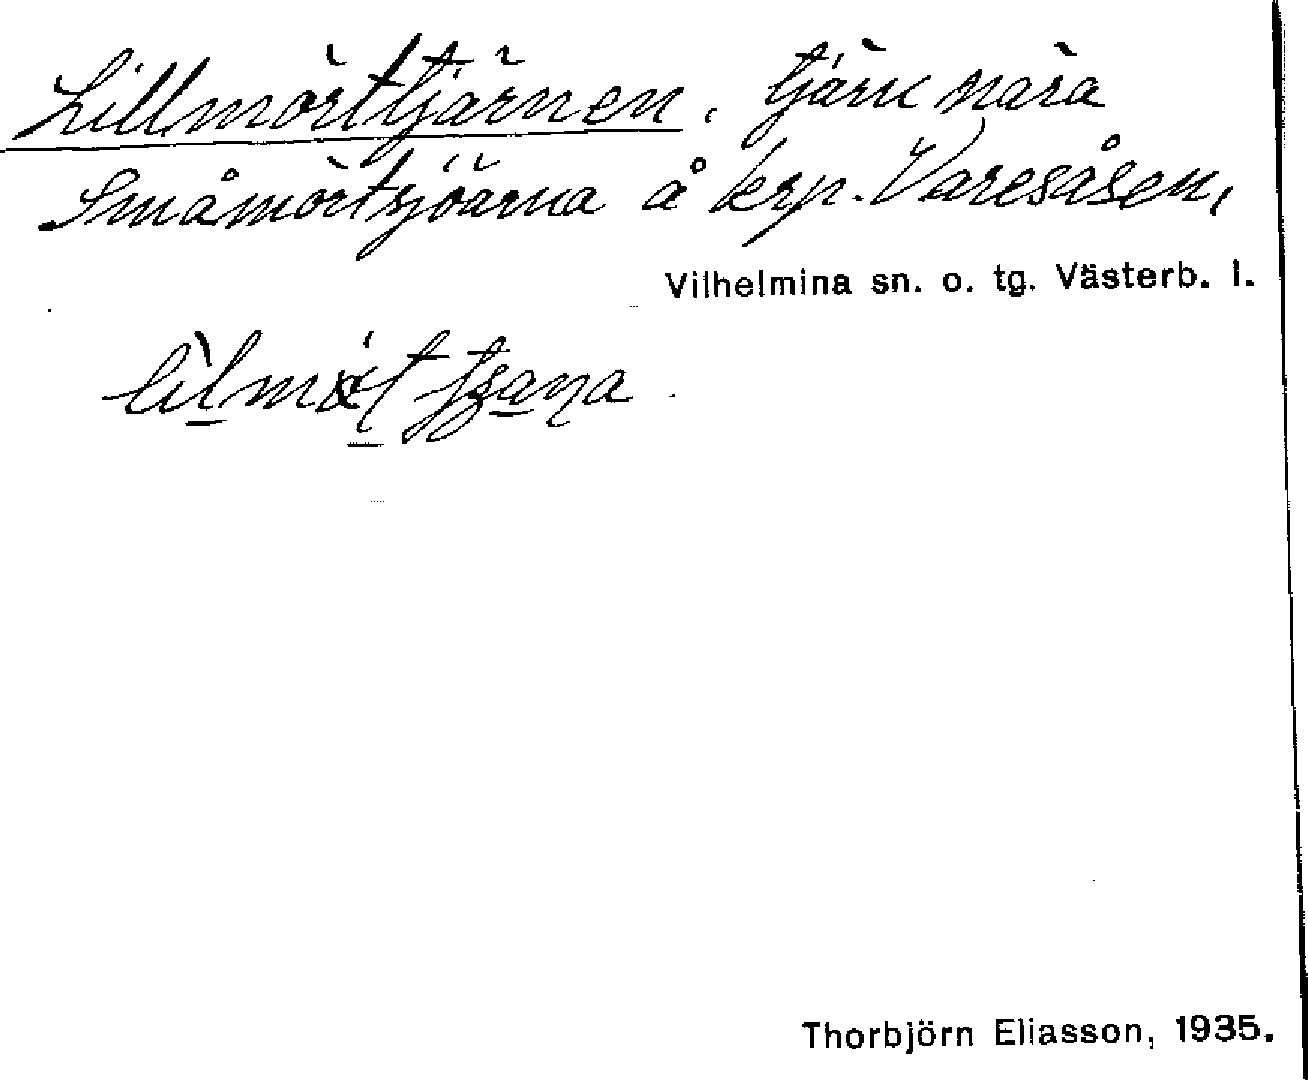 Lillmörttjärnen, tjärn nära
Småmörtsjöarna å krp. Varesåsen,
Vilhelmina sn. o. tg. Västerb. l.
Thorbjörn Eliasson, 1935.